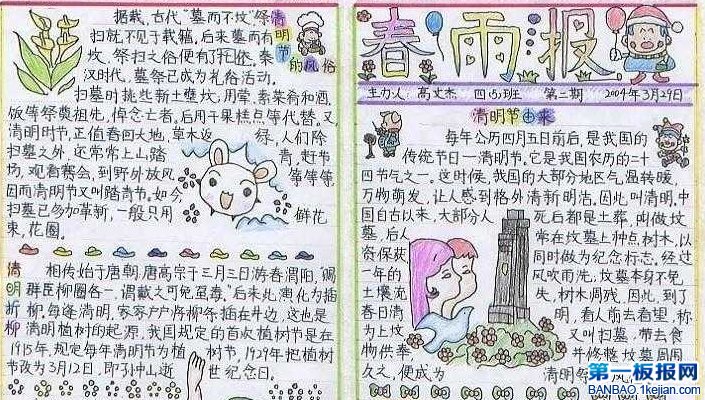 据载，古代"墓而不坟"祭
扫就不见于载籍，后来墓而有
坟，祭扫之俗便有了
汉时代，墓祭已成为礼俗活动。
扫墓时挑些新土壅坟；用荤、素菜肴和酒、
饭等祭奠祖先，悼念亡者。后用干果糕点等代替。又
清明时节，正值春回大地，草木返绿，人们除
扫墓之外，还常常上山踏青，赶节
场，观看赛会，到野外放风筝等等，
因而清明节又叫踏青节。如今，
扫墓已多加革新，一般只用鲜花
束，花圈。
清明节的风俗
清明插柳
相传始于唐朝，唐高宗于三月三日游春渭阳，
群臣柳圈各一，谓戴之可免虿毒。"后来此演化为插
柳，每逢清明，家家户户将柳条插在井边，这也是
清明植树的起源，我国规定的首次植树节是在
1915年，规定每年清明节为植树节，1929年把植树
节改为3月12日，即孙中山逝世纪念日。
春雨报
主办人：高文杰 四(5)班 第二期 2004年3月29日
清明节由来
每年公历四月五日前后，是我国的
传统节日—清明节。它是我国农历的二十
四节气之一。这时候，我国的大部分地区气温转暖，
万物萌发，让人感到格外清新明洁，因此叫清明，中
国自古以来，大部分人死后都是土葬，叫做坟
墓，后人常在坟墓上种点树木，以
资保获同时做为纪念标志。经过
一年的风吹雨洗，坟墓本身不免
土壤流失，树木凋残。因此，到了
春日清明，看人前去看望，称
为上坟又叫扫墓，带去食
物供奉，并修整坟墓周围
久之，便成为清明祭 风
第一板报网
BANBAO.1kejian.com